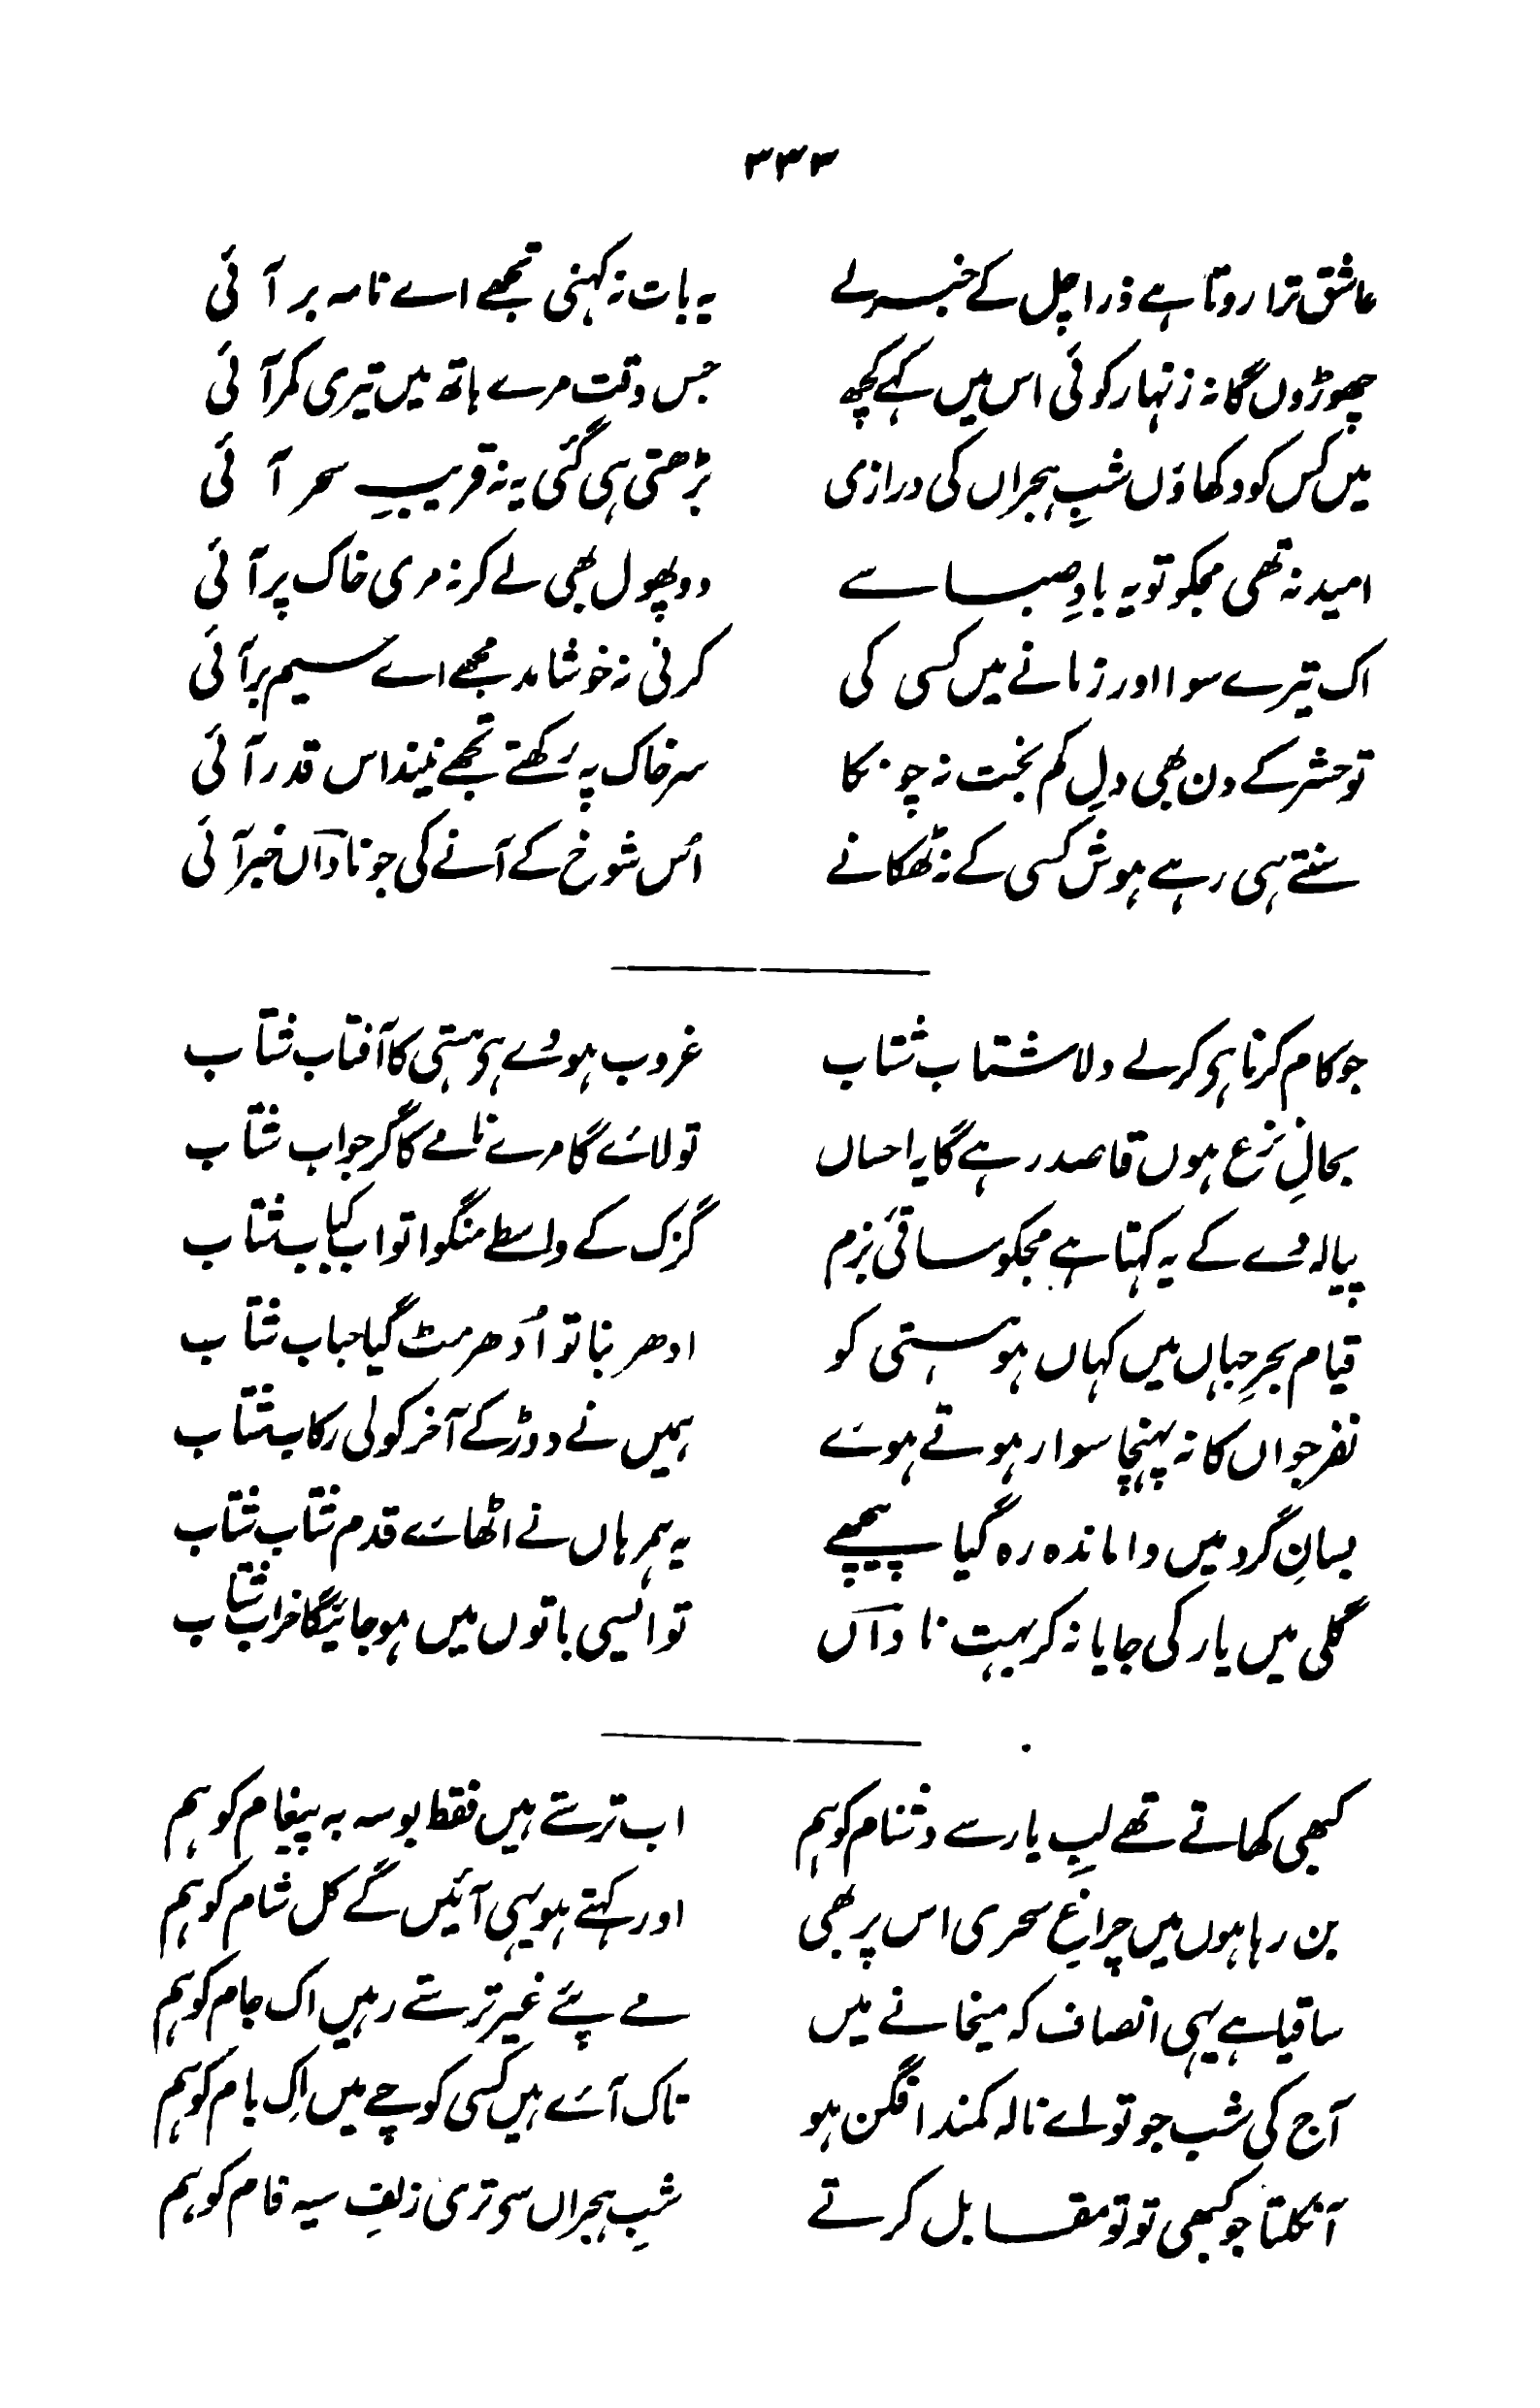 ۳۳۳
عاشق ترا روتا ہے ذرا چل کے خبر لے یہ بات نہ کہنی تجھے اے نامہ بر آئی
چھوڑوں گا نہ زنہار کوئی اس میں کہے کچھ جس وقت مرے ہاتھ میں تیری کمر آئی
میں کس کو دکھاؤں شبِ ہجراں کی درازی بڑھتی ہی گئی یہ نہ قریبِ سحر آئی
امید نہ تھی مجکو تو یہ بادِ صبا سے دو پھول بھی لے کر نہ مری خاک پر آئی
اک تیرے سوا اور زمانے میں کسی کی کرنی نہ خوشامد مجھے اے سیم بر آئی
تو حشر کے دن بھی دلِ کم بخت نہ چونکا سر خاک پہ رکھتے تجھے نیند اس قدر آئی
سنتے ہی رہے ہوش کسی کے نہ ٹھکانے اُس شوخ کے آنے کی جو ناداںؔ خبر آئی
جو کام کرنا ہی کر لے دلا شتاب شتاب غروب ہووے ہی ہستی کا آفتاب شتاب
بحالِ نزع ہوں قاصد رہے گا یہ احساں تو لائے گا مرے نامے کا گر جواب شتاب
پیالہ دے کے یہ کہتا ہے مجکو ساقیٔ بزم گزک کے واسطے منگوا تو اب کباب شتاب
قیام بحرِ جہاں میں کہاں ہو ہستی کو ادھر بنا تو اُدھر مٹ گیا حباب شتاب
نفر جو اں کا نہ پہنچا سوار ہوتے ہوئے ہمیں نے دوڑ کے آخر کو لی رکاب شتاب
بسانِ گرد میں واماندہ رہ گیا پیچھے یہ ہمرہاں نے اٹھائے قدم شتاب شتاب
گلی میں یار کی جایا نہ کر بہت ناداںؔ تو ایسی باتوں میں ہو جائیگا خراب شتاب
کبھی کھاتے تھے لبِ یار سے دشنام کو ہم اب ترستے ہیں فقط بوسہ بہ پیغام کو ہم
بن رہا ہوں میں چراغِ سحری اس پر بھی اور کہتے ہو یہی آئیں گے کل شام کو ہم
ساقیا ہے یہی انصاف کہ میخانے میں مے پئے غیر ترستے رہیں اک جام کو ہم
آج کی شب جو تو اے نالہ کمند افگن ہو تاک آئے ہیں کسی کوچے میں اِک بام کو ہم
آ نکلتا جو کبھی تو تو مقابل کرتے شبِ ہجراں سی تری زلفِ سیہ فام کو ہم